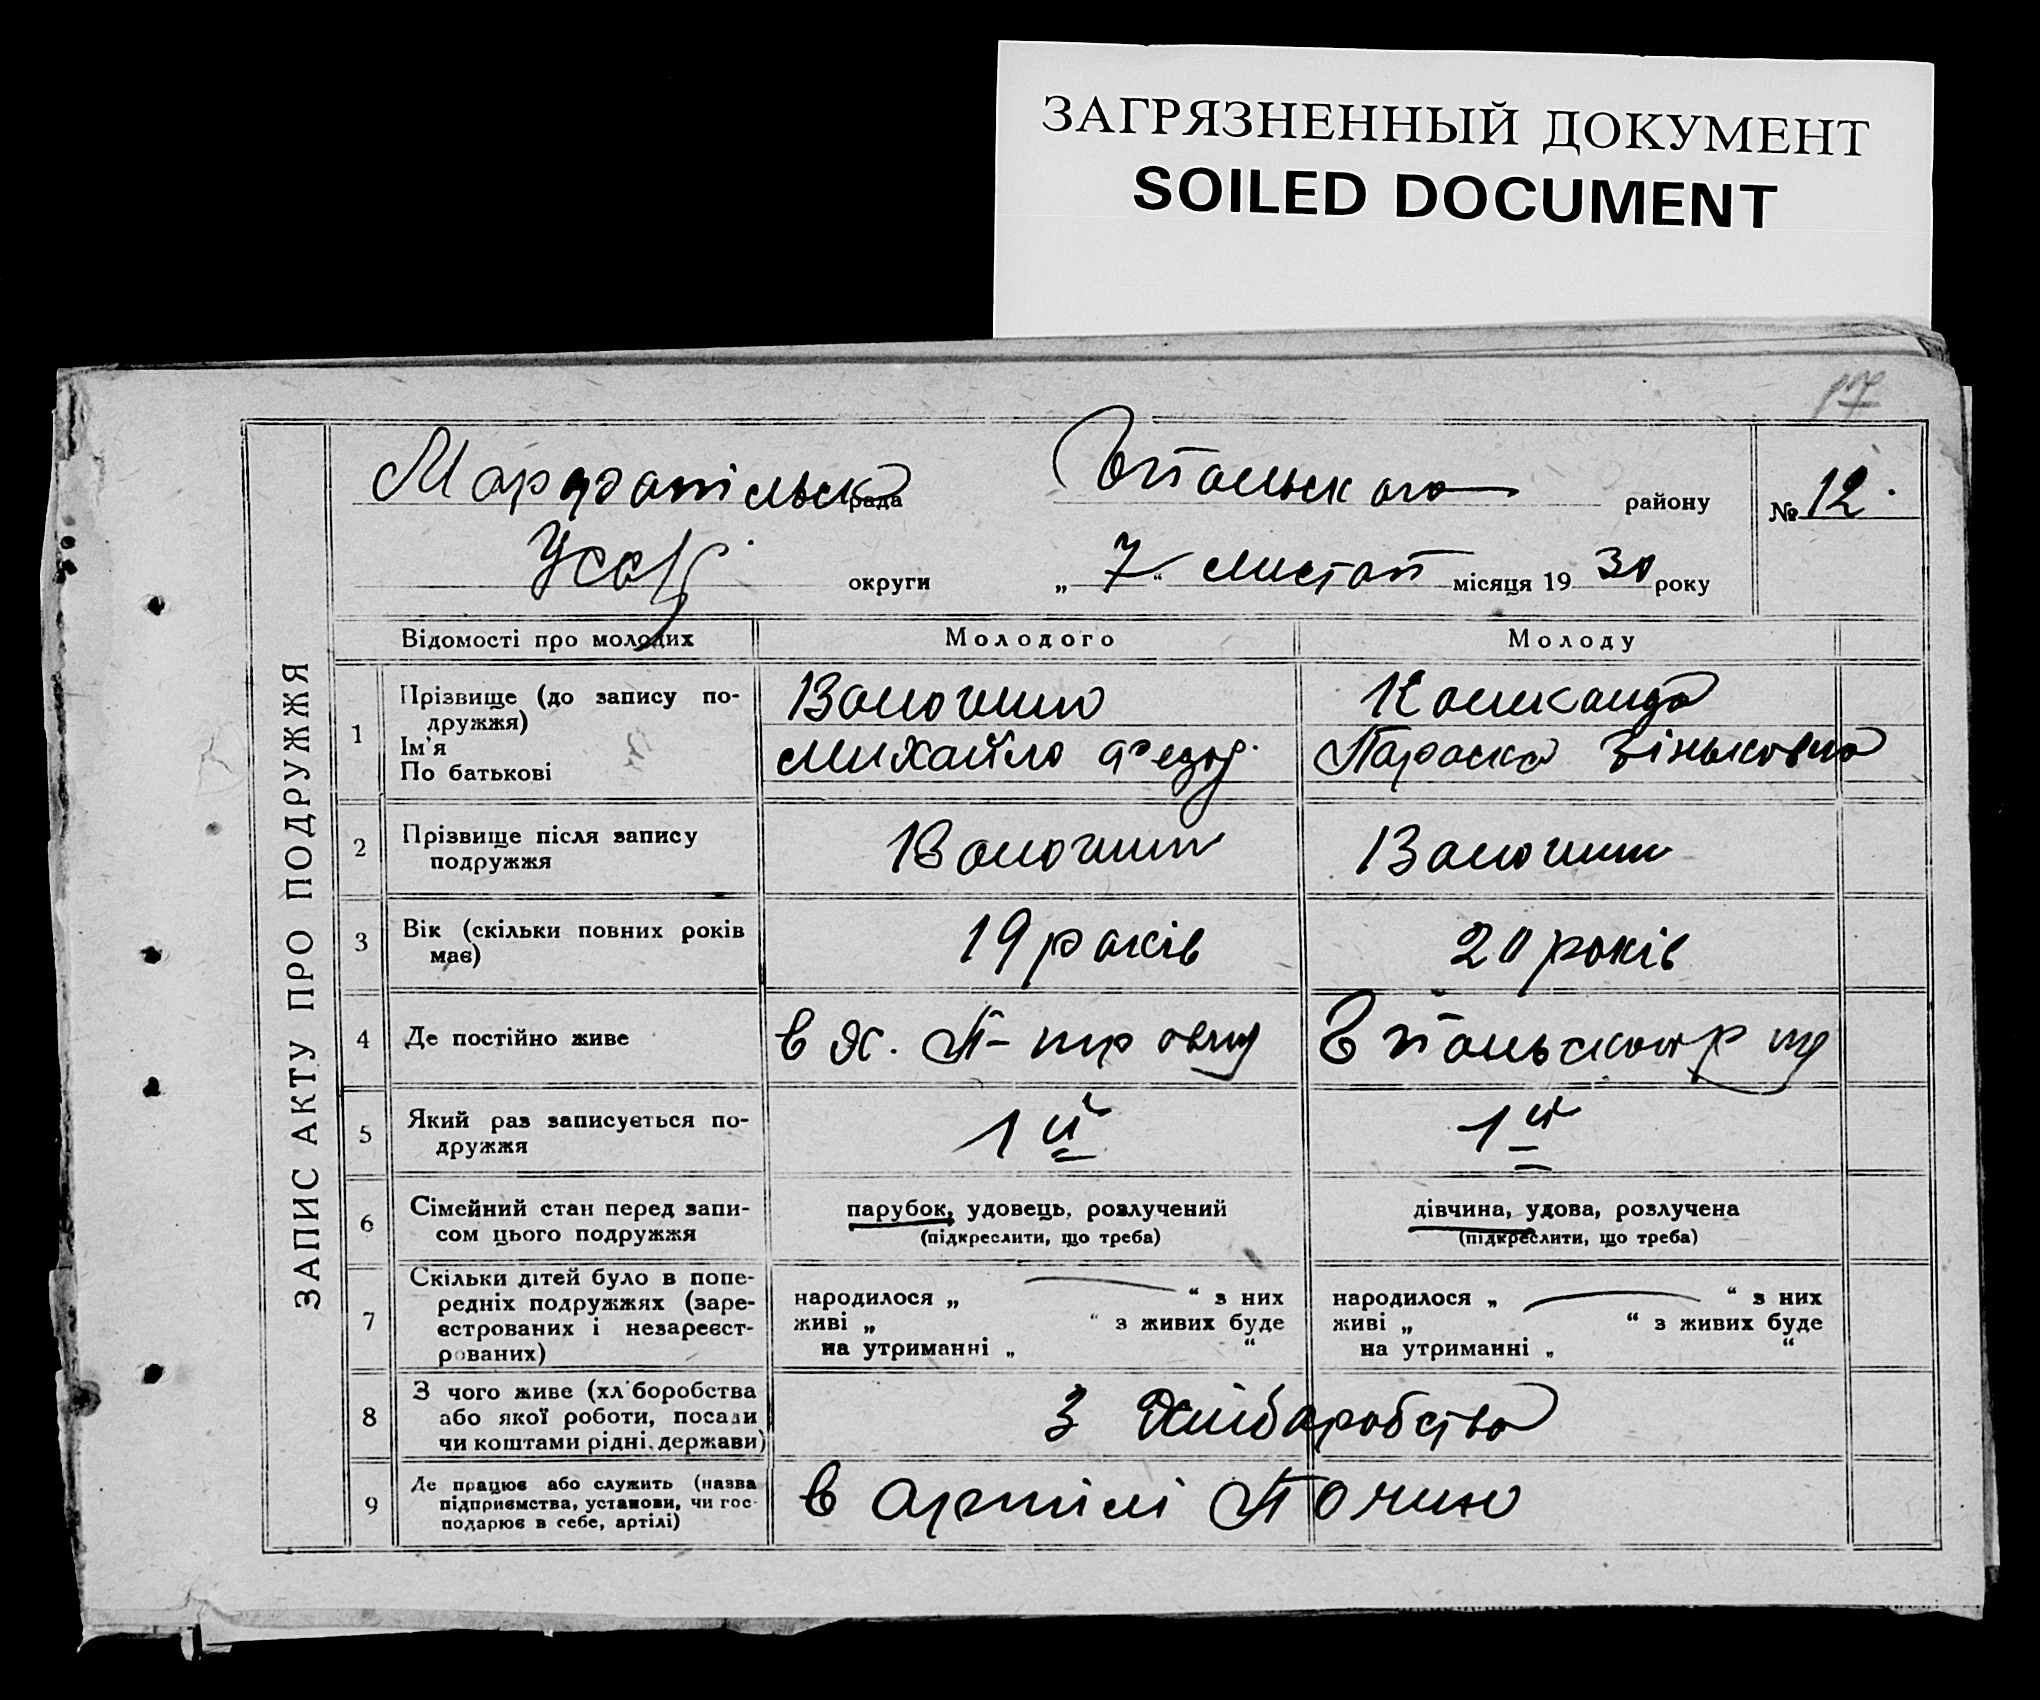 ЗАГРЯЗНЕННЫЙ ДОКУМЕНТ
SOILED DOCUMENT
ЗАПИС АКТУ ПРО ПОДРУЖЖЯ
рада району № 12.
округи „ 7 “ листоп місяця 1930 року
Відомості про молодих Молодого Молоду
1 Прізвище (до запису по-
дружжя)
Ім'я
По батькові
Волошин
Михайло Федод.
Параска Зіньковна
2 Прізвище після запису
подружжя
Волошин Волошин
3 Вік (скільки повних років
має)
19 років 20 років
4 Де постійно живе
в
5 Який раз записується по-
дружжя
1й 1й
6 Сімейний стан перед запи-
сом цього подружжя
парубок, удовець, розлучений
(підкреслити, що треба)
дівчина, удова, розлучена
(підкреслити, що треба)
7 Скільки дітей було в попе-
редніх подружжях (заре-
єстрованих і незареєст-
рованих)
народилося „ “ з них
живі „ “ з живих буде
на утриманні „ “
народилося „ “ з них
живі „ “ з живих буде
на утриманні „ “
8 З чого живе (хл боробства
або якої роботи, посади
чи коштами рідні, держави)
З хлібаробства
9 Де працює або служить (назва
підприємства, установи, чи гос-
подарює в себе, артілі)
в артілі Почин